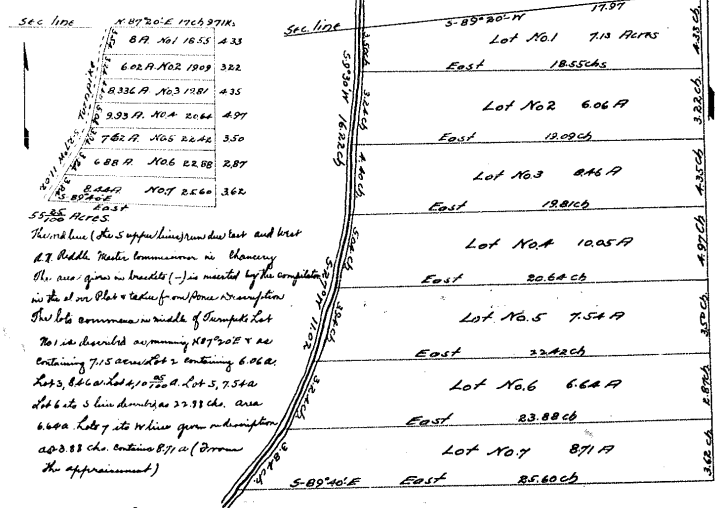 Sec line N.87°20'E 17ch 97lks
8 A. No.1 18.55 4.33
6.02 A. No.2 19.09 3.22
8.336 A. No.3 19.81 4.35
9.93 A. No.4 20.64 4.97
7.62 A. No.5 22.42 3.50
6.88 A. No.6 22.88 2.87
8.44 A No.7 25.60 3.62
S-89°40'E
East
Turnpike
S-27°W 11.02
55 25/100 Acres.
The mid line (the 5 upper lines) run due east and west
Riddle Master Commissioner in Chancery
The area given in brackets (-) is inserted by the compilator
in the above Plat & taken from Description
The lots commence in middle of Turnpike Lot
No1 is described as running N87°20'E & as
containing 7.15 acres Lot 2 containing 6.06a.
Lot 3, 8.46a. Lot 4, 10 05/100 a. Lot 5, 7.54a
Lot 6 its S line as 22.98 chs. area
6.64a. Lot 7 its W line given in description
as 3.88 chs. contains 8.71 a (From
the appraisement)
Sec. line S-89°20'-W 17.97
Lot No.1 7.13 Acres
East 18.55chs
4.33 ch
Lot No2 6.06 A
East 19.09ch
3.22ch.
Lot No3 8.46 A
East 19.81ch
4.35ch
Lot No.4 10.05 A
East 20.64ch
4.97 ch
Lot No.5 7.54 A
East 22.42ch
3.50ch
Lot No.6 6.64 A
East 23.88ch
2.87ch
Lot No.7 8.71 A
S-89°40'-E East 25.60ch
3.62 ch
S-9°30'W 16.22ch
3.24ch
4.40ch
5.04ch
S-27°W 11.02
3.94ch
3.24ch
3.84ch